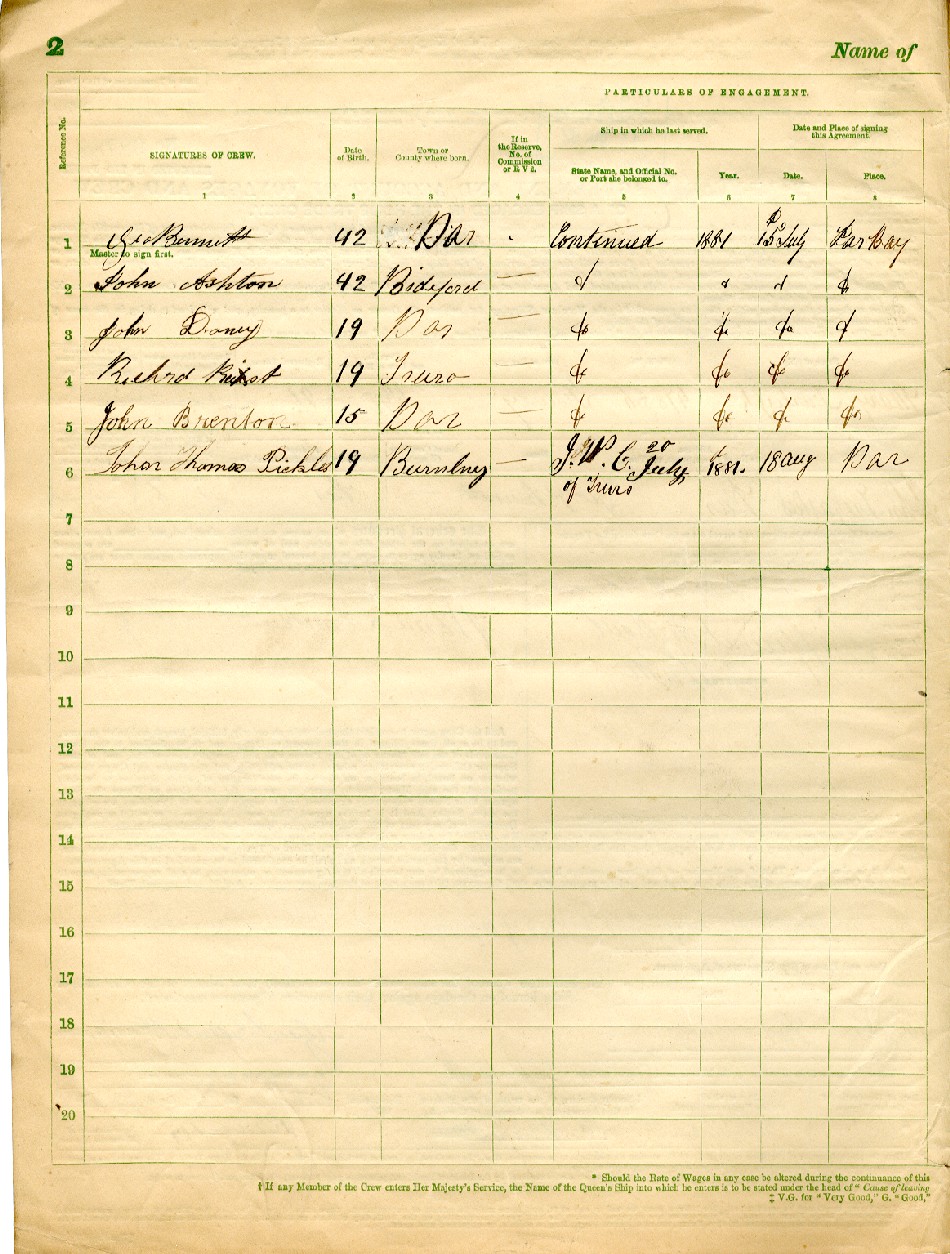 2 Name of
PARTICULARS OF ENGAGEMENT.
Reference No.
SIGNATURES OF CREW.
Date of Birth.
Town or County where born.
If in the Reserve, No. of Commission or R V 2.
Ship in which he last served.
Date and Place of signing this Agreement.
State Name, and Official No. or Port she belonged to.
Year.
Date.
Place.
1 2 3 4 5 6 7 8
1 Geo Bennett 42 Par Continued 1881 15 July Par Bay
Master to sign first.
2 John Ashton 42 Bideford —
3 John 19 Par —
4 Richrd 19 Truro —
5 John Brenton 15 Par —
6 John Thomas Pickles 19 Burnley — J.W.P. 20 July 1881. 18 aug Par
of Truro
7
8
9
10
11
12
13
14
15
16
17
18
19
20
* Should the Rate of Wages in any case be altered during the continuance of this
† If any Member of the Crew enters Her Majesty's Service, the Name of the Queen's Ship into which he enters is to be stated under the head of "Cause of leaving
‡ V.G. for "Very Good," G. "Good,"